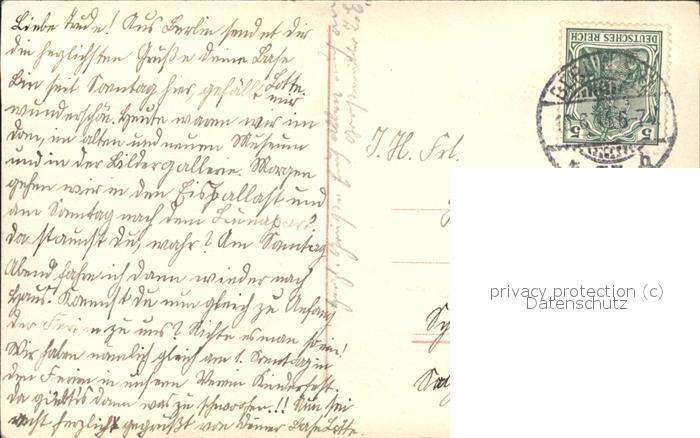 Liebe Trude! Aus Berlin sendet dir
die herzlichsten Grüße deine Base
Lotte.
Bin seit Sonntag hier, gefällt mir
wunderschön. Heute waren wir im
Dom, im alten und neuen Museum
und in der Bildergallerie. Morgen
gehen wir in den Eispallast und
am Sonntag nach dem Lunapark.
Da staunst du, wahr? Am Sonntag
Abend fahre ich dann wieder nach
Haus. Kommst du nun gleich zu Anfang
der Ferien zu uns? Richte es man so ein!
Wir haben nämlich gleich am 1. Sonntag in
den Ferien in unserm Verein Kinderfest.
Da giebts dann was zu schwoofen!! Nun sei
recht herzlich gegrüßt von deiner Base Lotte.
I. H. Frl.
DEUTSCHES REICH
5 5
privacy protection (c)
Datenschutz